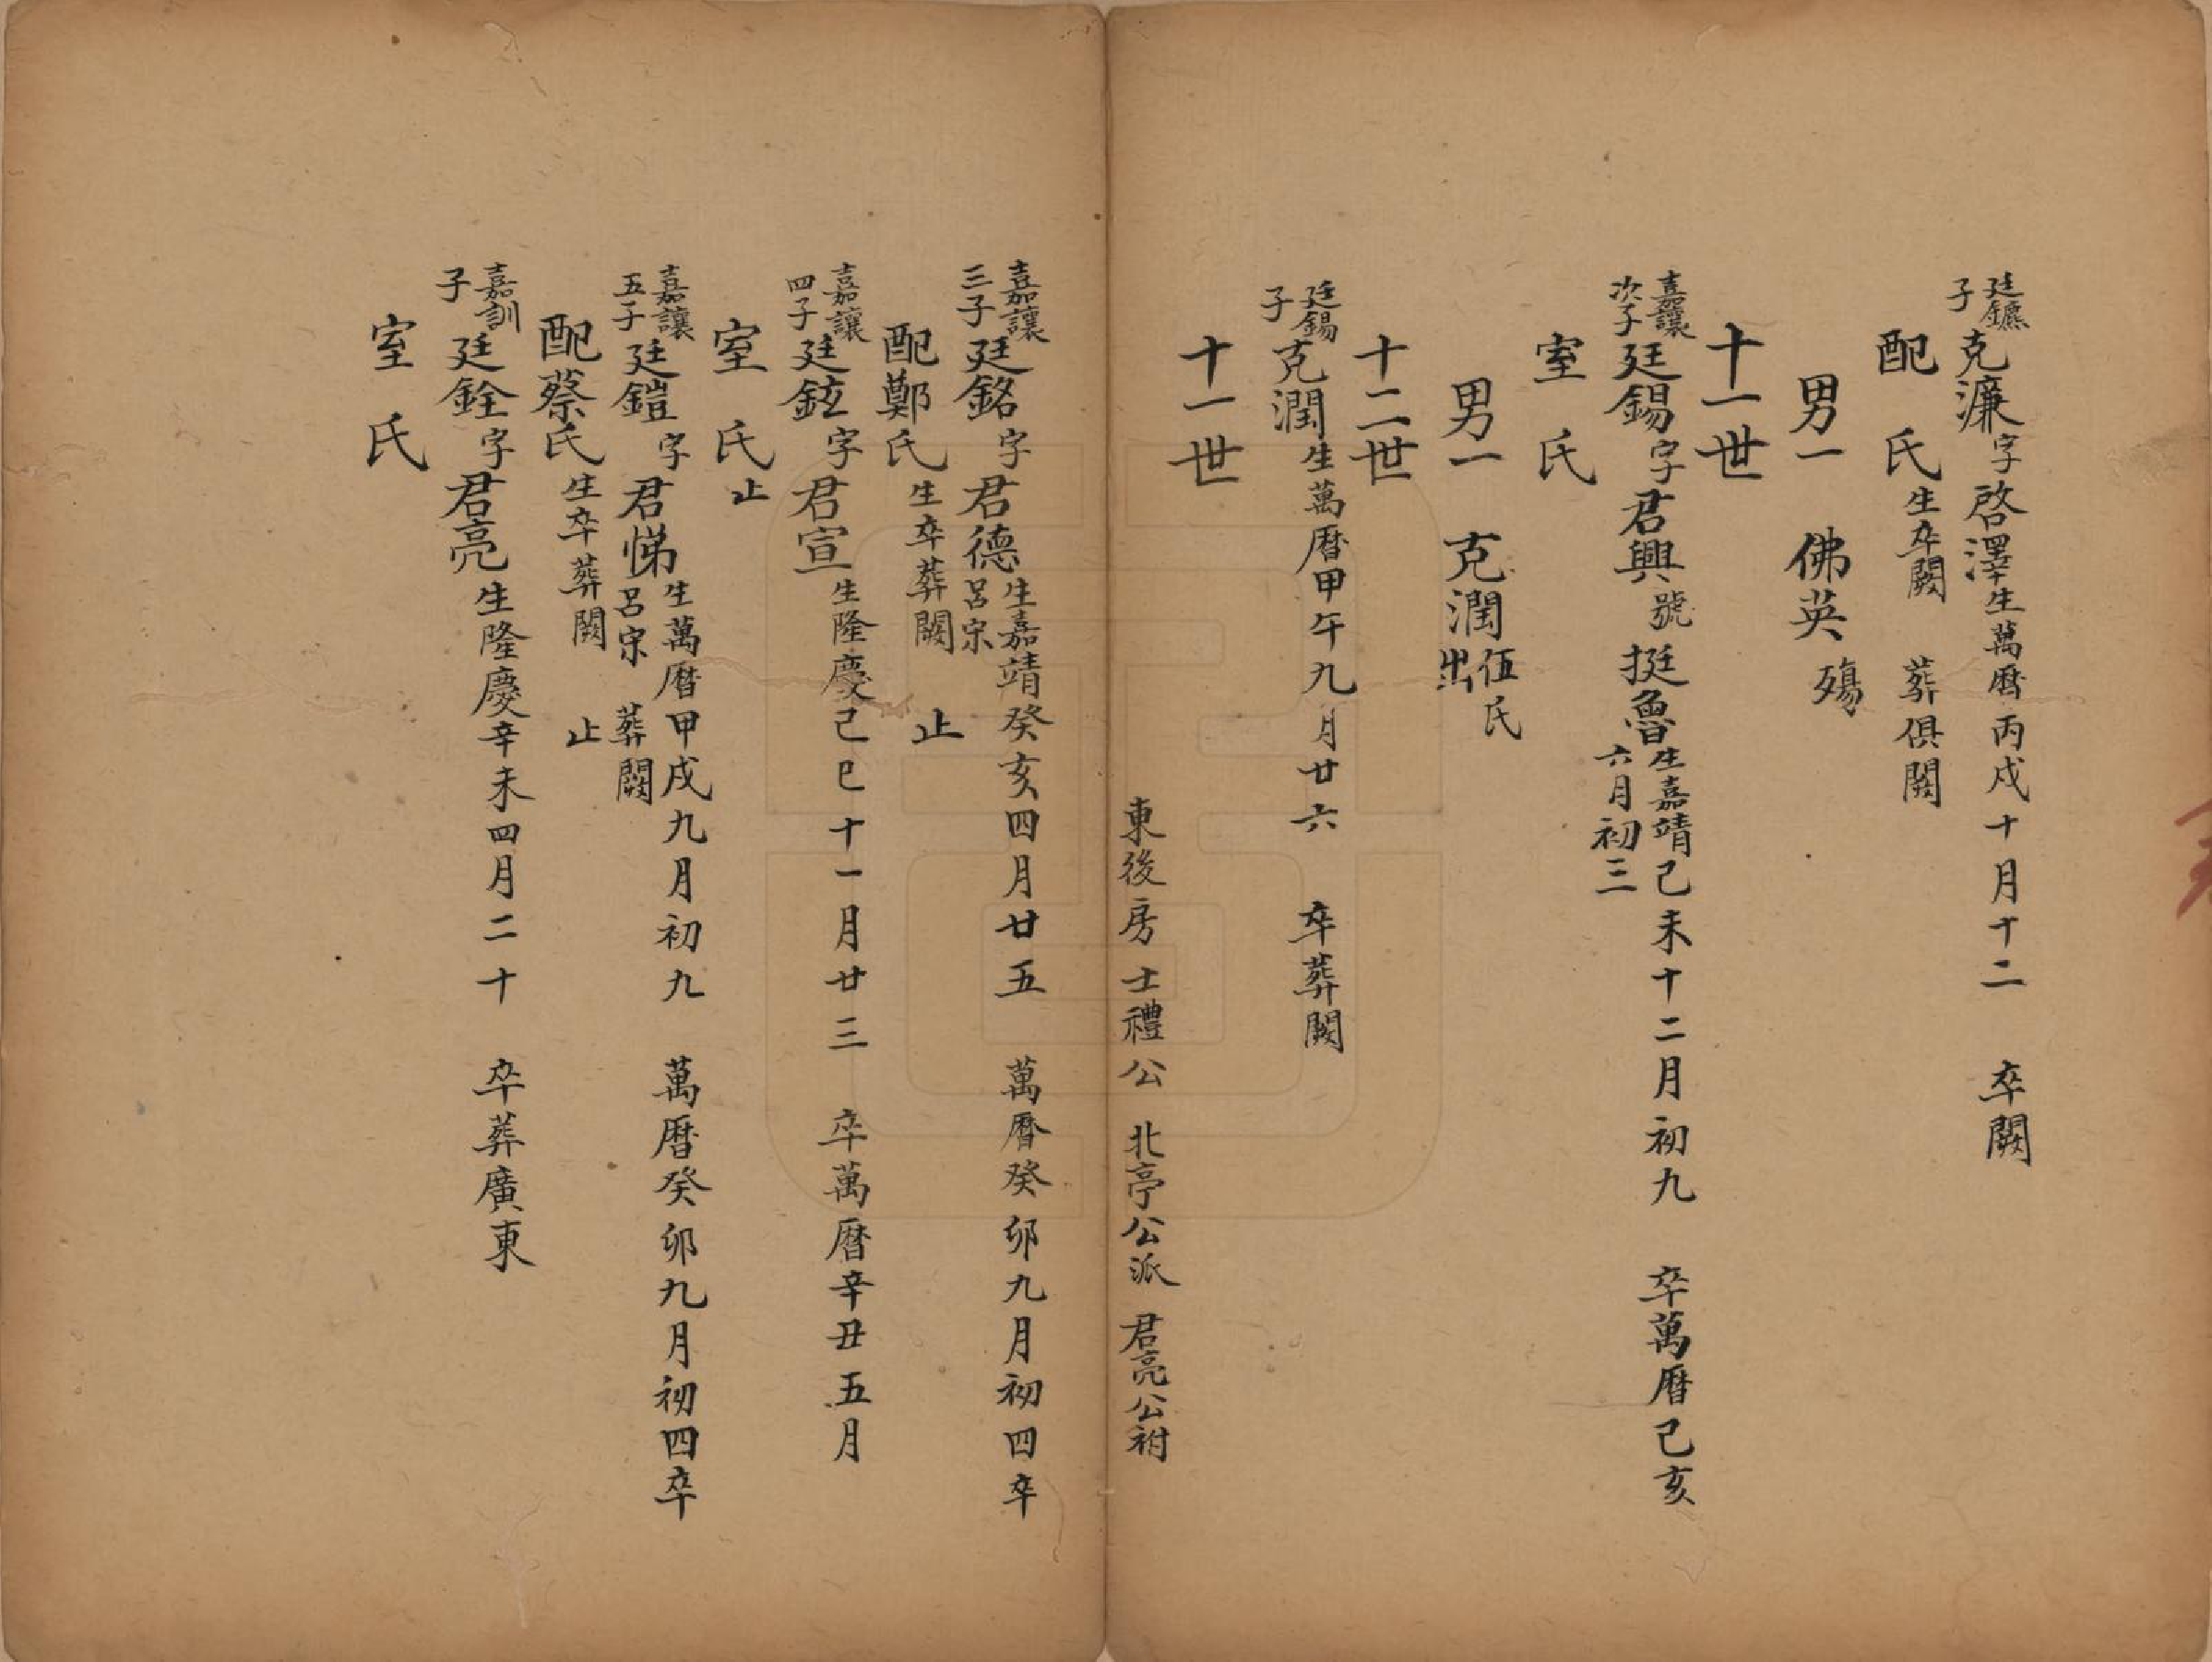 廷鑣子克濂字啓澤生萬曆丙戌十月十二 卒闕
配 氏生卒闕 葬俱闕
男一 佛英殤
十一世
嘉讓次子廷錫字君興號挺魯生嘉靖己未十二月初九 卒萬曆己亥六月初三
室 氏
男一 克潤伍氏出
十二世
廷錫子克潤生萬曆甲午九月廿六 卒葬闕
十一世
東後房士禮公 北亭公派 君亮公祔
嘉讓三子廷銘字君德生嘉靖癸亥四月廿五 萬曆癸卯九月初四卒呂宋
配鄭氏生卒葬闕 止
嘉讓四子廷鉉字君宣生隆慶己巳十一月廿三 卒萬曆辛丑五月
室 氏止
嘉讓五子廷鎧字君悌生萬曆甲戌九月初九 萬曆癸卯九月初四卒呂宋 葬闕
配蔡氏生卒葬闕 止
嘉訓子廷銓字君亮生隆慶辛未四月二十 卒葬廣東
室 氏